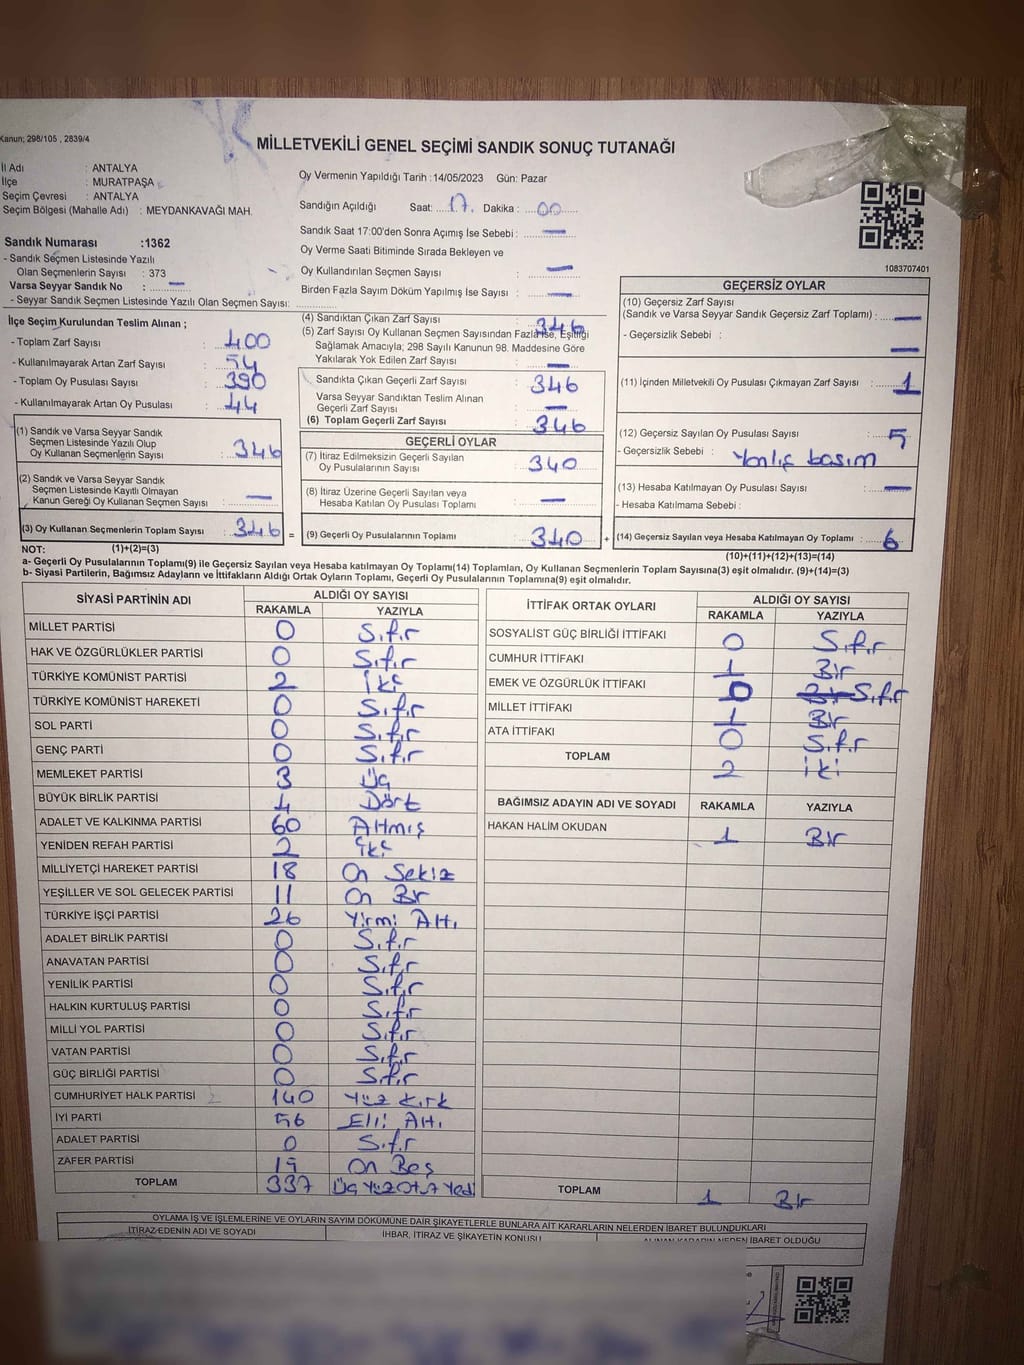 Kanun; 298/105 , 2839/4
MİLLETVEKİLİ GENEL SEÇİMİ SANDIK SONUÇ TUTANAĞI
İl Adı : ANTALYA
İlçe : MURATPAŞA
Seçim Çevresi : ANTALYA
Seçim Bölgesi (Mahalle Adı) : MEYDANKAVAĞI MAH.
Oy Vermenin Yapıldığı Tarih :14/05/2023 Gün: Pazar
Sandığın Açıldığı Saat: 17 Dakika : 00
Sandık Saat 17:00'den Sonra Açımış İse Sebebi : —
Oy Verme Saati Bitiminde Sırada Bekleyen ve
Oy Kullandırılan Seçmen Sayısı : —
Birden Fazla Sayım Döküm Yapılmış İse Sayısı : —
1083707401
Sandık Numarası :1362
- Sandık Seçmen Listesinde Yazılı
Olan Seçmenlerin Sayısı : 373
Varsa Seyyar Sandık No : —
- Seyyar Sandık Seçmen Listesinde Yazılı Olan Seçmen Sayısı:
İlçe Seçim Kurulundan Teslim Alınan ;
- Toplam Zarf Sayısı : 400
- Kullanılmayarak Artan Zarf Sayısı : 54
- Toplam Oy Pusulası Sayısı : 390
- Kullanılmayarak Artan Oy Pusulası : 44
(1) Sandık ve Varsa Seyyar Sandık
Seçmen Listesinde Yazılı Olup
Oy Kullanan Seçmenlerin Sayısı : 346
(2) Sandık ve Varsa Seyyar Sandık
Seçmen Listesinde Kayıtlı Olmayan
Kanun Gereği Oy Kullanan Seçmen Sayısı : —
(3) Oy Kullanan Seçmenlerin Toplam Sayısı : 346 =
(4) Sandıktan Çıkan Zarf Sayısı : 346
(5) Zarf Sayısı Oy Kullanan Seçmen Sayısından Fazla İse, Eşitliği
Sağlamak Amacıyla; 298 Sayılı Kanunun 98. Maddesine Göre
Yakılarak Yok Edilen Zarf Sayısı : —
Sandıkta Çıkan Geçerli Zarf Sayısı : 346
Varsa Seyyar Sandıktan Teslim Alınan
Geçerli Zarf Sayısı : —
(6) Toplam Geçerli Zarf Sayısı : 346
GEÇERLİ OYLAR
(7) İtiraz Edilmeksizin Geçerli Sayılan
Oy Pusulalarının Sayısı : 340
(8) İtiraz Üzerine Geçerli Sayılan veya
Hesaba Katılan Oy Pusulası Toplamı : —
(9) Geçerli Oy Pusulalarının Toplamı : 340 +
GEÇERSİZ OYLAR
(10) Geçersiz Zarf Sayısı
(Sandık ve Varsa Seyyar Sandık Geçersiz Zarf Toplamı) : —
- Geçersizlik Sebebi : —
(11) İçinden Milletvekili Oy Pusulası Çıkmayan Zarf Sayısı : 1
(12) Geçersiz Sayılan Oy Pusulası Sayısı : 5
- Geçersizlik Sebebi : Yanlış basım
(13) Hesaba Katılmayan Oy Pusulası Sayısı : —
- Hesaba Katılmama Sebebi :
(14) Geçersiz Sayılan veya Hesaba Katılmayan Oy Toplamı : 6
NOT: (1)+(2)=(3)
(10)+(11)+(12)+(13)=(14)
a- Geçerli Oy Pusulasının Toplamı(9) ile Geçersiz Sayılan veya Hesaba Katılmayan Oy Toplamı(14) Toplamları, Oy Kullanan Seçmenlerin Toplam Sayısına(3) eşit olmalıdır. (9)+(14)=(3)
b- Siyasi Partilerin, Bağımsız Adayların ve İttifakların Aldığı Ortak Oyların Toplamı, Geçerli Oy Pusulalarının Toplamına(9) eşit olmalıdır.
SİYASİ PARTİNİN ADI ALDIĞI OY SAYISI
RAKAMLA YAZIYLA
MİLLET PARTİSİ 0 Sıfır
HAK VE ÖZGÜRLÜKLER PARTİSİ 0 Sıfır
TÜRKİYE KOMÜNİST PARTİSİ 2 İki
TÜRKİYE KOMÜNİST HAREKETİ 0 Sıfır
SOL PARTİ 0 Sıfır
GENÇ PARTİ 0 Sıfır
MEMLEKET PARTİSİ 3 Üç
BÜYÜK BİRLİK PARTİSİ 4 Dört
ADALET VE KALKINMA PARTİSİ 60 Altmış
YENİDEN REFAH PARTİSİ 2 iki
MİLLİYETÇİ HAREKET PARTİSİ 18 On Sekiz
YEŞİLLER VE SOL GELECEK PARTİSİ 11 On Bir
TÜRKİYE İŞÇİ PARTİSİ 26 Yirmi Altı
ADALET BİRLİK PARTİSİ 0 Sıfır
ANAVATAN PARTİSİ 0 Sıfır
YENİLİK PARTİSİ 0 Sıfır
HALKIN KURTULUŞ PARTİSİ 0 Sıfır
MİLLİ YOL PARTİSİ 0 Sıfır
VATAN PARTİSİ 0 Sıfır
GÜÇ BİRLİĞİ PARTİSİ 0 Sıfır
CUMHURİYET HALK PARTİSİ 140 Yüz Kırk
İYİ PARTİ 56 Elli Altı
ADALET PARTİSİ 0 Sıfır
ZAFER PARTİSİ 15 On Beş
TOPLAM 337 Üç Yüz Otuz Yedi
İTTİFAK ORTAK OYLARI ALDIĞI OY SAYISI
RAKAMLA YAZIYLA
SOSYALIST GÜÇ BİRLİĞİ İTTİFAKI 0 Sıfır
CUMHUR İTTİFAKI 1 Bir
EMEK VE ÖZGÜRLÜK İTTİFAKI 0 Sıfır
MİLLET İTTİFAKI 1 Bir
ATA İTTİFAKI 0 Sıfır
TOPLAM 2 iki
BAĞIMSIZ ADAYIN ADI VE SOYADI RAKAMLA YAZIYLA
HAKAN HALİM OKUDAN 1 Bir
TOPLAM 1 Bir
OYLAMA İŞ VE İŞLEMLERİNE VE OYLARIN SAYIM DÖKÜMÜNE DAİR ŞİKAYETLERLE BUNLARA AİT KARARLARIN NELERDEN İBARET BULUNDUKLARI
İTİRAZ EDENİN ADI VE SOYADI İHBAR, İTİRAZ VE ŞİKAYETİN KONUSU ALINAN KARARIN NEDEN İBARET OLDUĞU